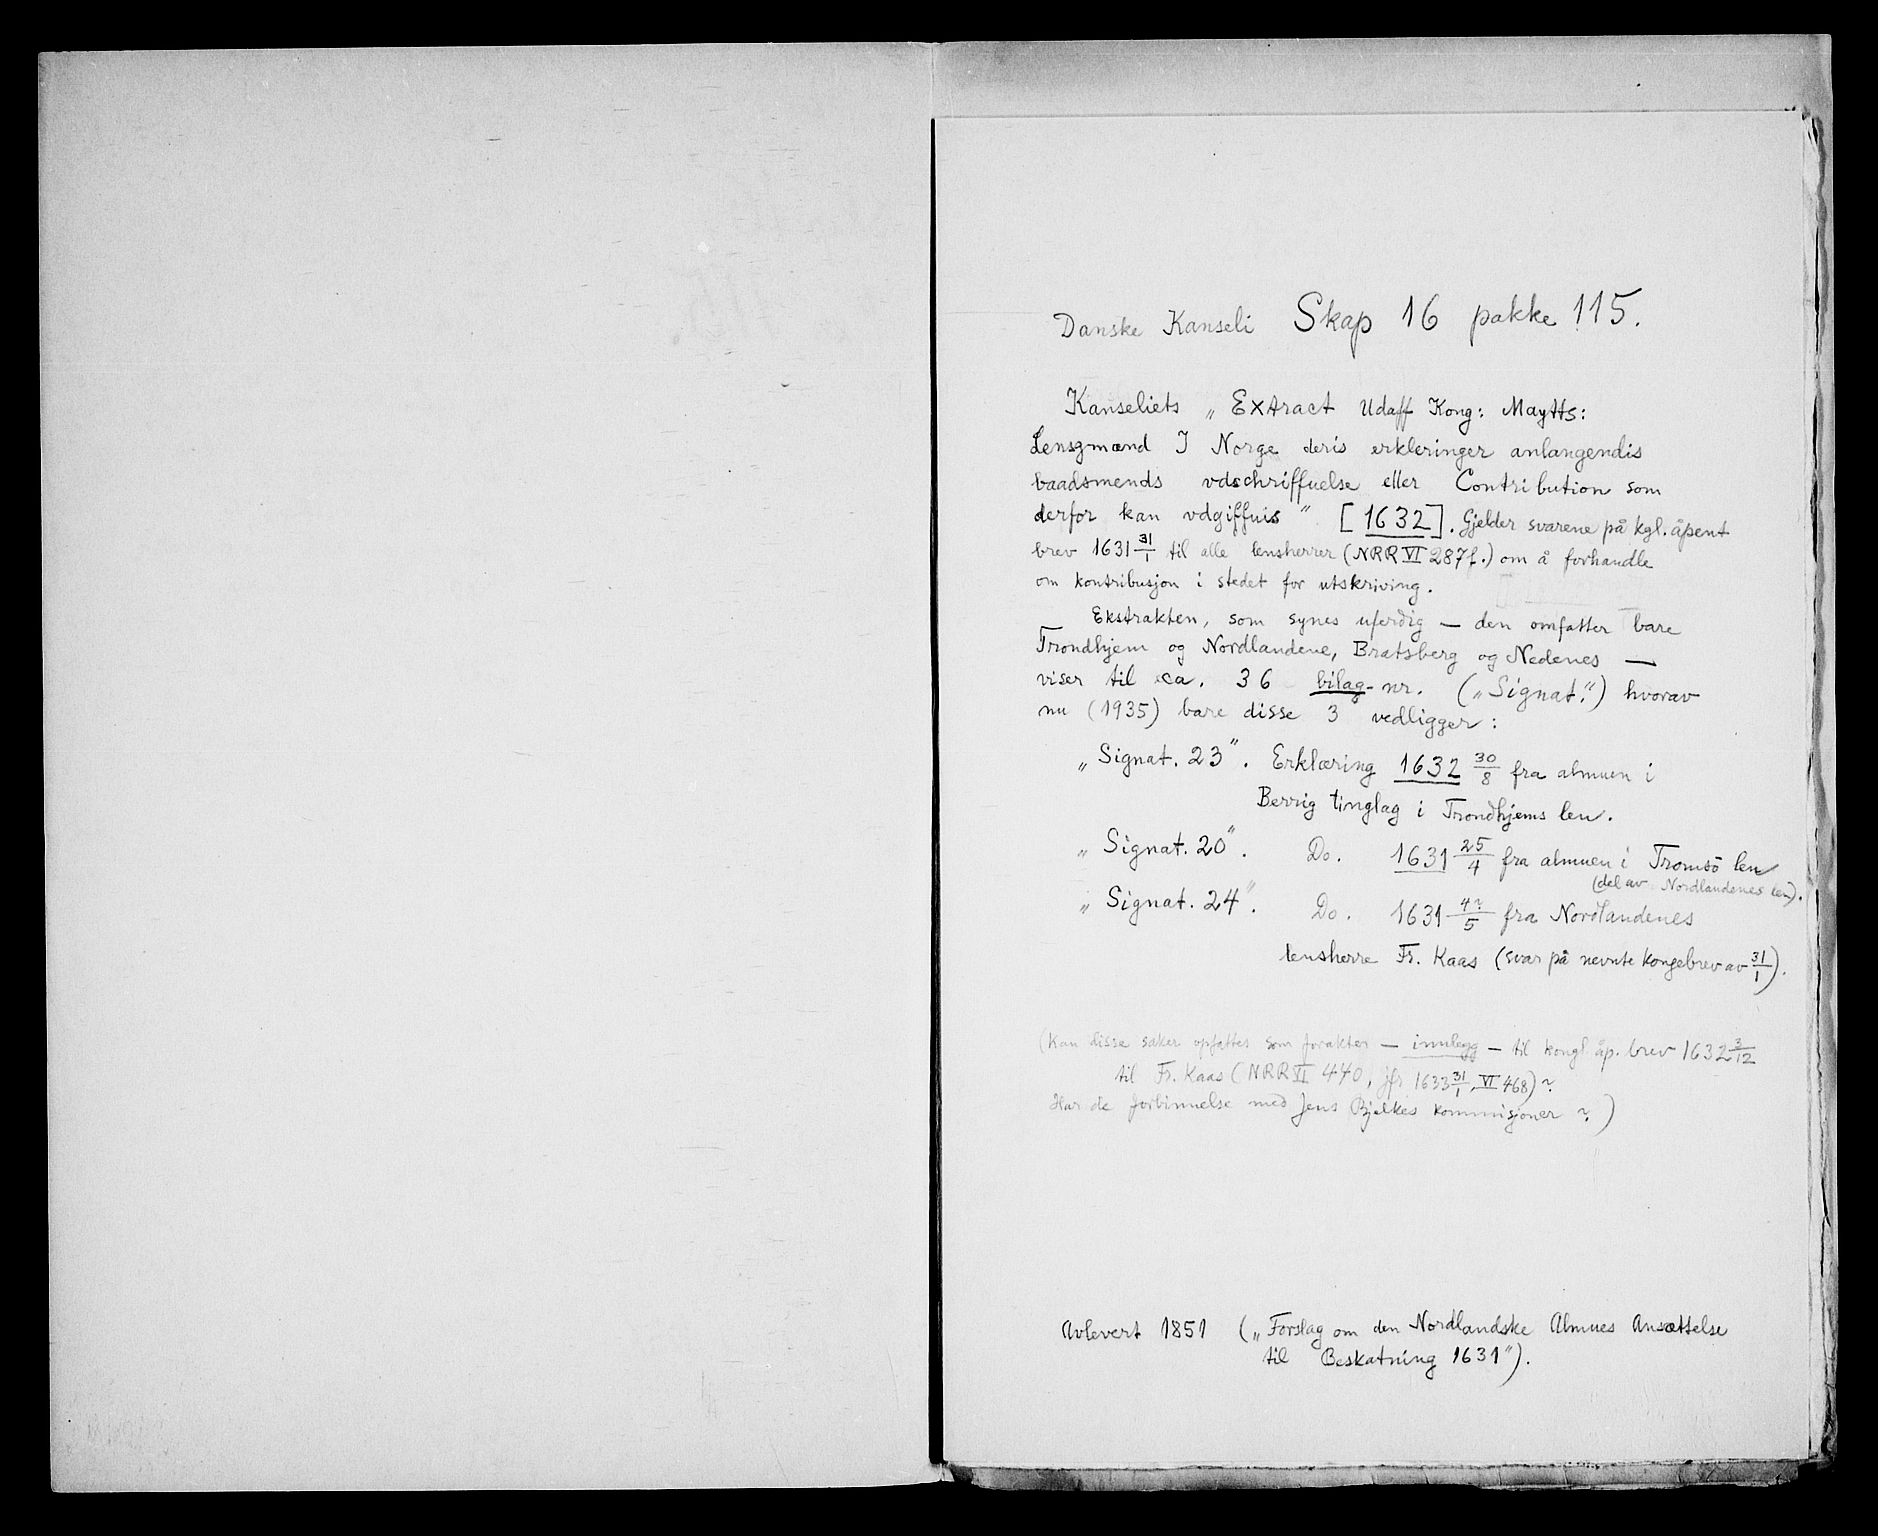 Danske Kanseli Skap 16 pakke 115.
Kanseliets „Extract Udaff Kong: Maytts:
Lensmænd I Norge deris erkleringer anlangendis
baadsmends vdschriffuelse eller Contribution som
derfor kan vdgiffuis" [1632]. Gjelder svarene på kgl. åpent
brev 1631 31/1 til alle lensherrer (NRR VI 287f.) om å forhandle
om kontribusjon i stedet for utskriving.
Ekstrakten, som synes uferdig — den omfatter bare
Trondhjem og Nordlandene, Bratsberg og Nedenes —
viser til ca. 36 bilag-nr. („Signat.") hvorav
nu (1935) bare disse 3 vedligger:
„Signat. 23". Erklæring 1632 30/8 fra almuen i
Berrig tinglag i Trondhjems len.
„Signat. 20". Do. 1631 25/4 fra almuen i Tromsö len
(del av Nordlandenes len).
„Signat. 24". Do. 1631 4?/5 fra Nordlandenes
lensherre Fr. Kaas (svar på nevnte kongebrev av 31/1).
(Kan disse saker opfattes som forakter — innlegg — til kongl. åp. brev 1632 3/12
til Fr. Kaas (NRR VI 440, jfr 1633 31/1, VI 468)?
Har de forbinnelse med Jens Bjelkes kommisjoner?)
Avlevert 1851 („Forslag om den Nordlandske Almues Ansættelse
til Beskatning 1631").